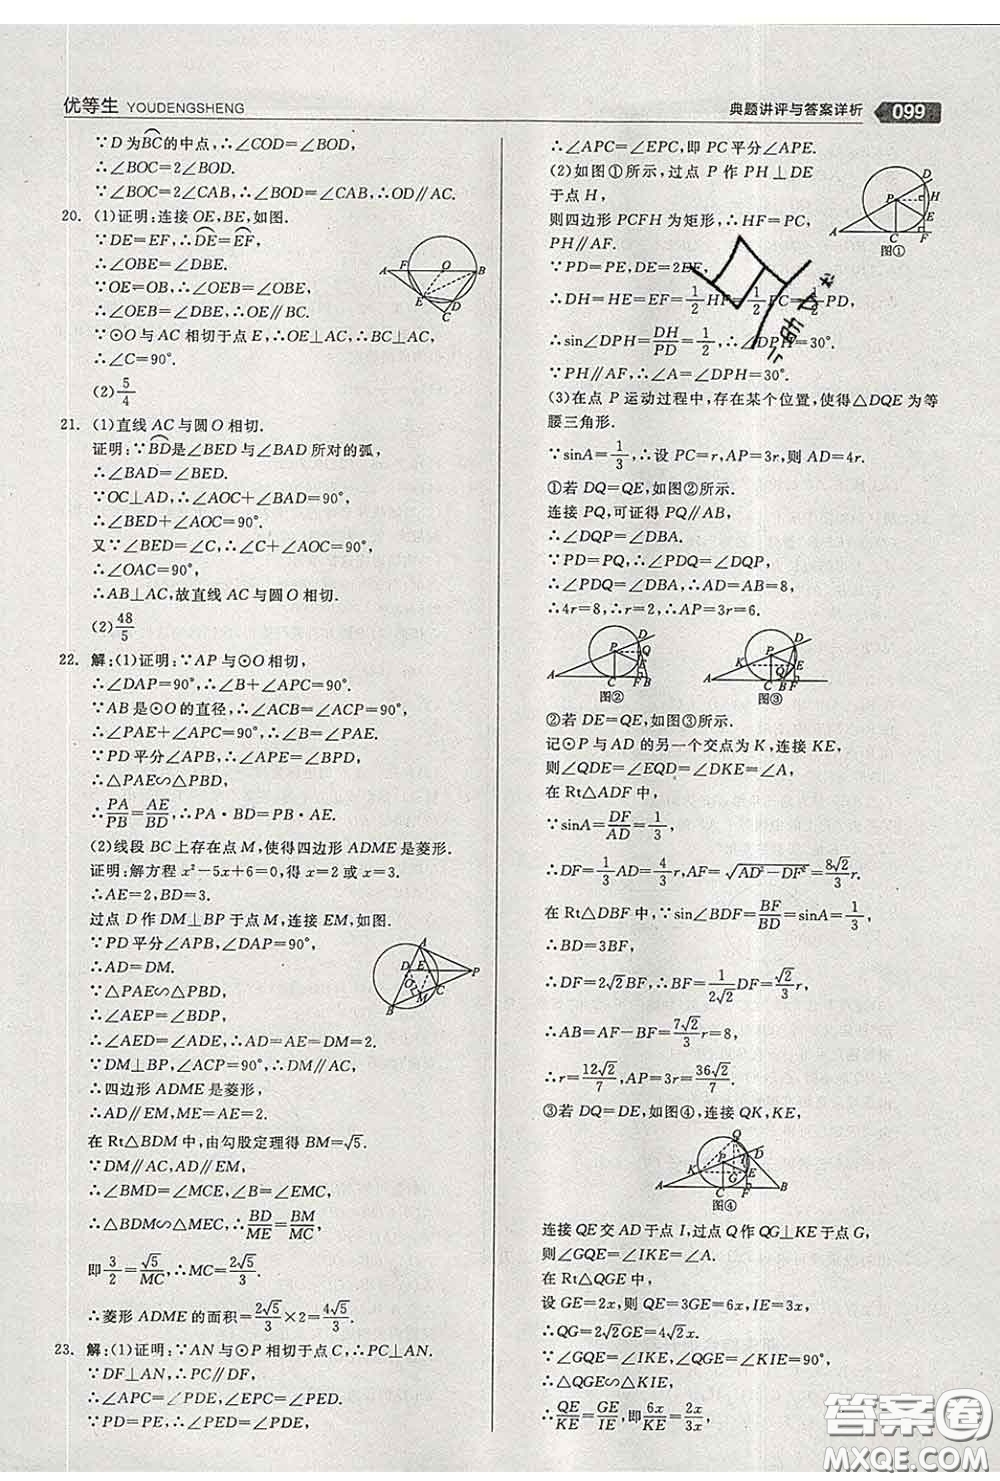 优等生 YOUDENGSHENG
典题讲评与答案详析 099
∵D为BC的中点,∴∠COD=∠BOD.
∴∠BOC=2∠BOD.
∵∠BOC=2∠CAB,∴∠BOD=∠CAB,∴OD∥AC.
20. (1)证明:连接OE,BE,如图.
∵DE=EF,∴DE=EF,
∴∠OBE=∠DBE.
∵OE=OB,∴∠OEB=∠OBE,
∴∠OEB=∠DBE,∴OE∥BC.
∵⊙O与AC相切于点E,∴OE⊥AC,∴BC⊥AC,
∴∠C=90°.
(2)5/4
21. (1)直线AC与圆O相切.
证明:∵BD是∠BED与∠BAD所对的弧,
∴∠BAD=∠BED.
∵OC⊥AD,∴∠AOC+∠BAD=90°,
∴∠BED+∠AOC=90°.
又∵∠BED=∠C,∴∠C+∠AOC=90°,
∴∠OAC=90°,
∴AB⊥AC,故直线AC与圆O相切.
(2)48/5
22. 解:(1)证明:∵AP与⊙O相切,
∴∠DAP=90°,∴∠B+∠APC=90°.
∵AB是⊙O的直径,∴∠ACB=90°,
∴∠PAE+∠APC=90°,∴∠B=∠PAE.
∵PD平分∠APB,∴∠APE=∠BPD,
∴△PAE∽△PBD,
∴PA/PB=AE/BD,∴PA·BD=PB·AE.
(2)线段BC上存在点M,使得四边形ADME是菱形.
证明:解方程x²-5x+6=0,得x=2或x=3.
∴AE=2,BD=3.
过点D作DM⊥BP于点M,连接EM,如图.
∵PD平分∠APB,∠DAP=90°,
∴AD=DM.
∵△PAE∽△PBD,
∴∠AEP=∠BDP,
∴∠AED=∠ADE,∴AD=AE=DM=2.
∵DM⊥BP,∠ACB=90°,∴DM∥AC,
∴四边形ADME是菱形,
∴AD∥EM,ME=AE=2.
在Rt△BDM中,由勾股定理得BM=√5.
∵DM∥AC,AD∥EM,
∴∠BMD=∠MCE=90°,∠B=∠EMC,
∴△BDM∽△MEC,∴BD/ME=BM/MC,
即3/2=√5/MC,∴MC=2√5/3.
∴菱形ADME的面积=2√5/3×2=4√5/3.
23. 解:(1)证明:∵AN与⊙P相切于点C,∴PC⊥AN.
∵DF⊥AN,∴PC∥DF,
∴∠APC=∠PDE,∠EPC=∠PED.
∵PD=PE,∴∠PDE=∠PED,
∴∠APC=∠EPC,即PC平分∠APE.
(2)如图①所示,过点P作PH⊥DE
于点H,
则四边形PCFH为矩形,∴HF=PC,
PH∥AF.
∵PD=PE,DE=2DH,
∴DH=HE=EF=1/2HF=1/2PC=1/2PD,
∴sin∠DPH=DH/PD=1/2,∴∠DPH=30°.
∵PH∥AF,∴∠A=∠DPH=30°.
(3)在点P运动过程中,存在某个位置,使得△DQE为等
腰三角形.
∵sinA=1/3,∴设PC=r,AP=3r,则AD=4r.
①若DQ=QE,如图②所示.
连接PQ,可证得PQ∥AB,
∴∠DQP=∠DBA.
∵PD=PQ,∴∠PDQ=∠DQP,
∴∠PDQ=∠DBA,∴AD=AB=8,
∴4r=8,∴r=2,∴AP=3r=6.
②若DE=QE,如图③所示.
记⊙P与AD的另一个交点为K,连接KE,
则∠QDE=∠EQD=∠DKE=∠A,
在Rt△ADF中,
∵sinA=DF/AD=1/3,
∴DF=1/3AD=4/3r,AF=√(AD²-DF²)=8√2/3r.
在Rt△DBF中,∵sin∠BDF=BF/BD=sinA=1/3,
∴BD=3BF,
∴DF=2√2BF,∴BF=1/(2√2)DF=√2/3r,
∴AB=AF-BF=7√2/3r=8,
∴r=12√2/7,∴AP=3r=36√2/7.
③若DQ=DE,如图④,连接QK,KE,
连接QE交AD于点I,过点Q作QG⊥KE于点G,
则∠GQE=∠IKE=∠A.
在Rt△QGE中,
设GE=2x,则QE=3GE=6x,IE=3x,
∴QG=2√2GE=4√2x.
∵∠GQE=∠IKE,
∴△QGE∽△KIE,
∴QE/KE=GE/IE,即6x/KE=2x/3x,
A F O B E D C
A D E P O M C B
D P H E A C F 图①
D P Q E A C F B 图②
D K P E Q A C B F 图③
Q P D I K E G A C F B 图④
答案圈
MXQE.COM